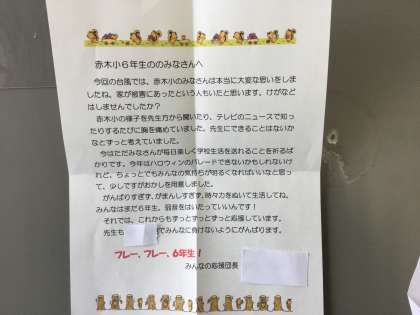 赤木小６年生ののみなさんへ
今回の台風では、赤木小のみなさんは本当に大変な思いをしま
したね。家が被害にあったという人もいたと思います。けがなど
はしませんでしたか？
赤木小の様子を先生方から聞いたり、テレビのニュースで知っ
たりするたびに胸を痛めていました。先生にできることはないか
なとずっと考えていました。
今はただみなさんが毎日楽しく学校生活を送れることを祈るば
かりです。今年はハロウィンのパレードできないかもしれないけ
れど、ちょっとでもみんなの気持ちが明るくなればいいなと思っ
て、少しですがおかしを用意しました。
がんばりすぎず、がまんしすぎず、時々力をぬいて生活してね。
みんなはまだ６年生。弱音をはいたっていいんです！
それでは、これからもずっとずっとずっと応援しています。
先生も
でみんなに負けないようにがんばります。
フレー、フレー、６年生！
みんなの応援団長